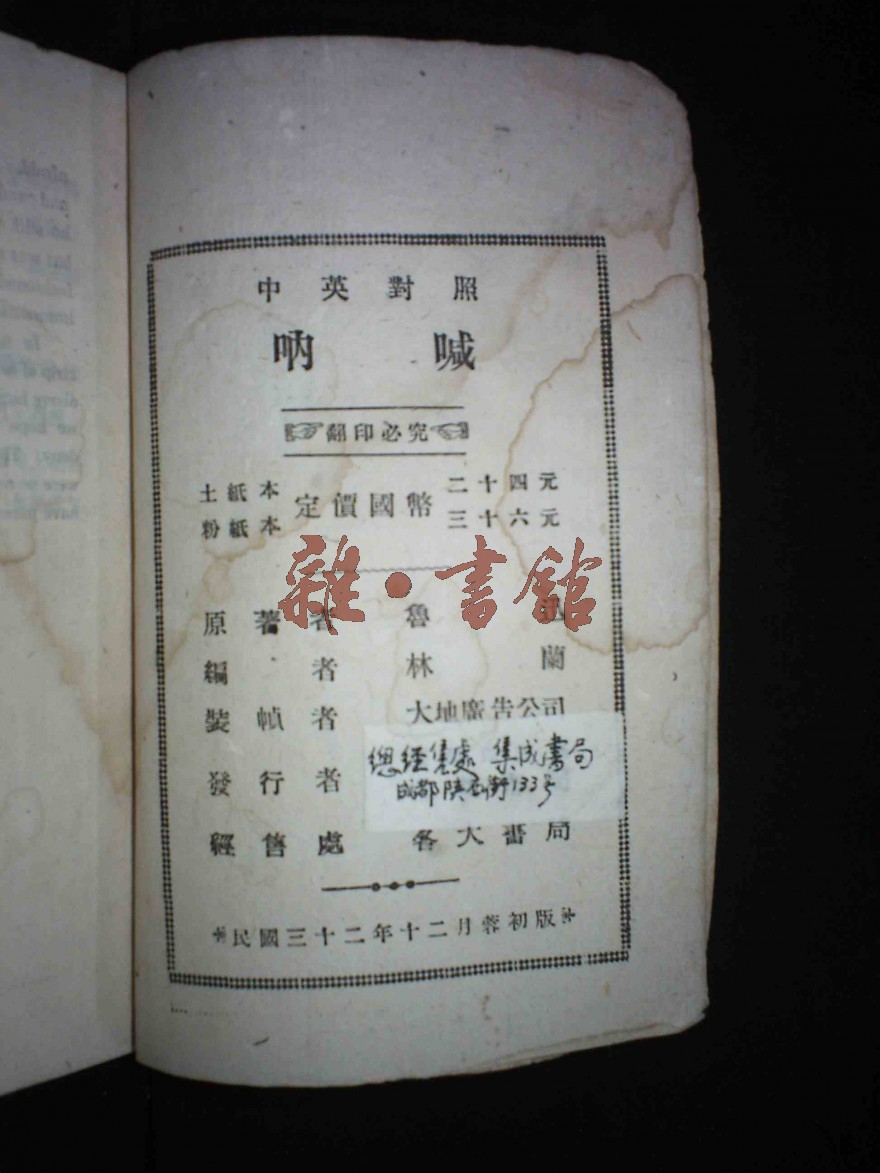 中英對照
吶喊
翻印必究
土紙本 定價國幣 二十四元
粉紙本 三十六元
雜·書館
原著者 魯迅
編者 林蘭
裝幀者 大地廣告公司
發行者
總經售處 集成書局
成都陝西街133号
經售處 各大書局
民國三十二年十二月蓉初版